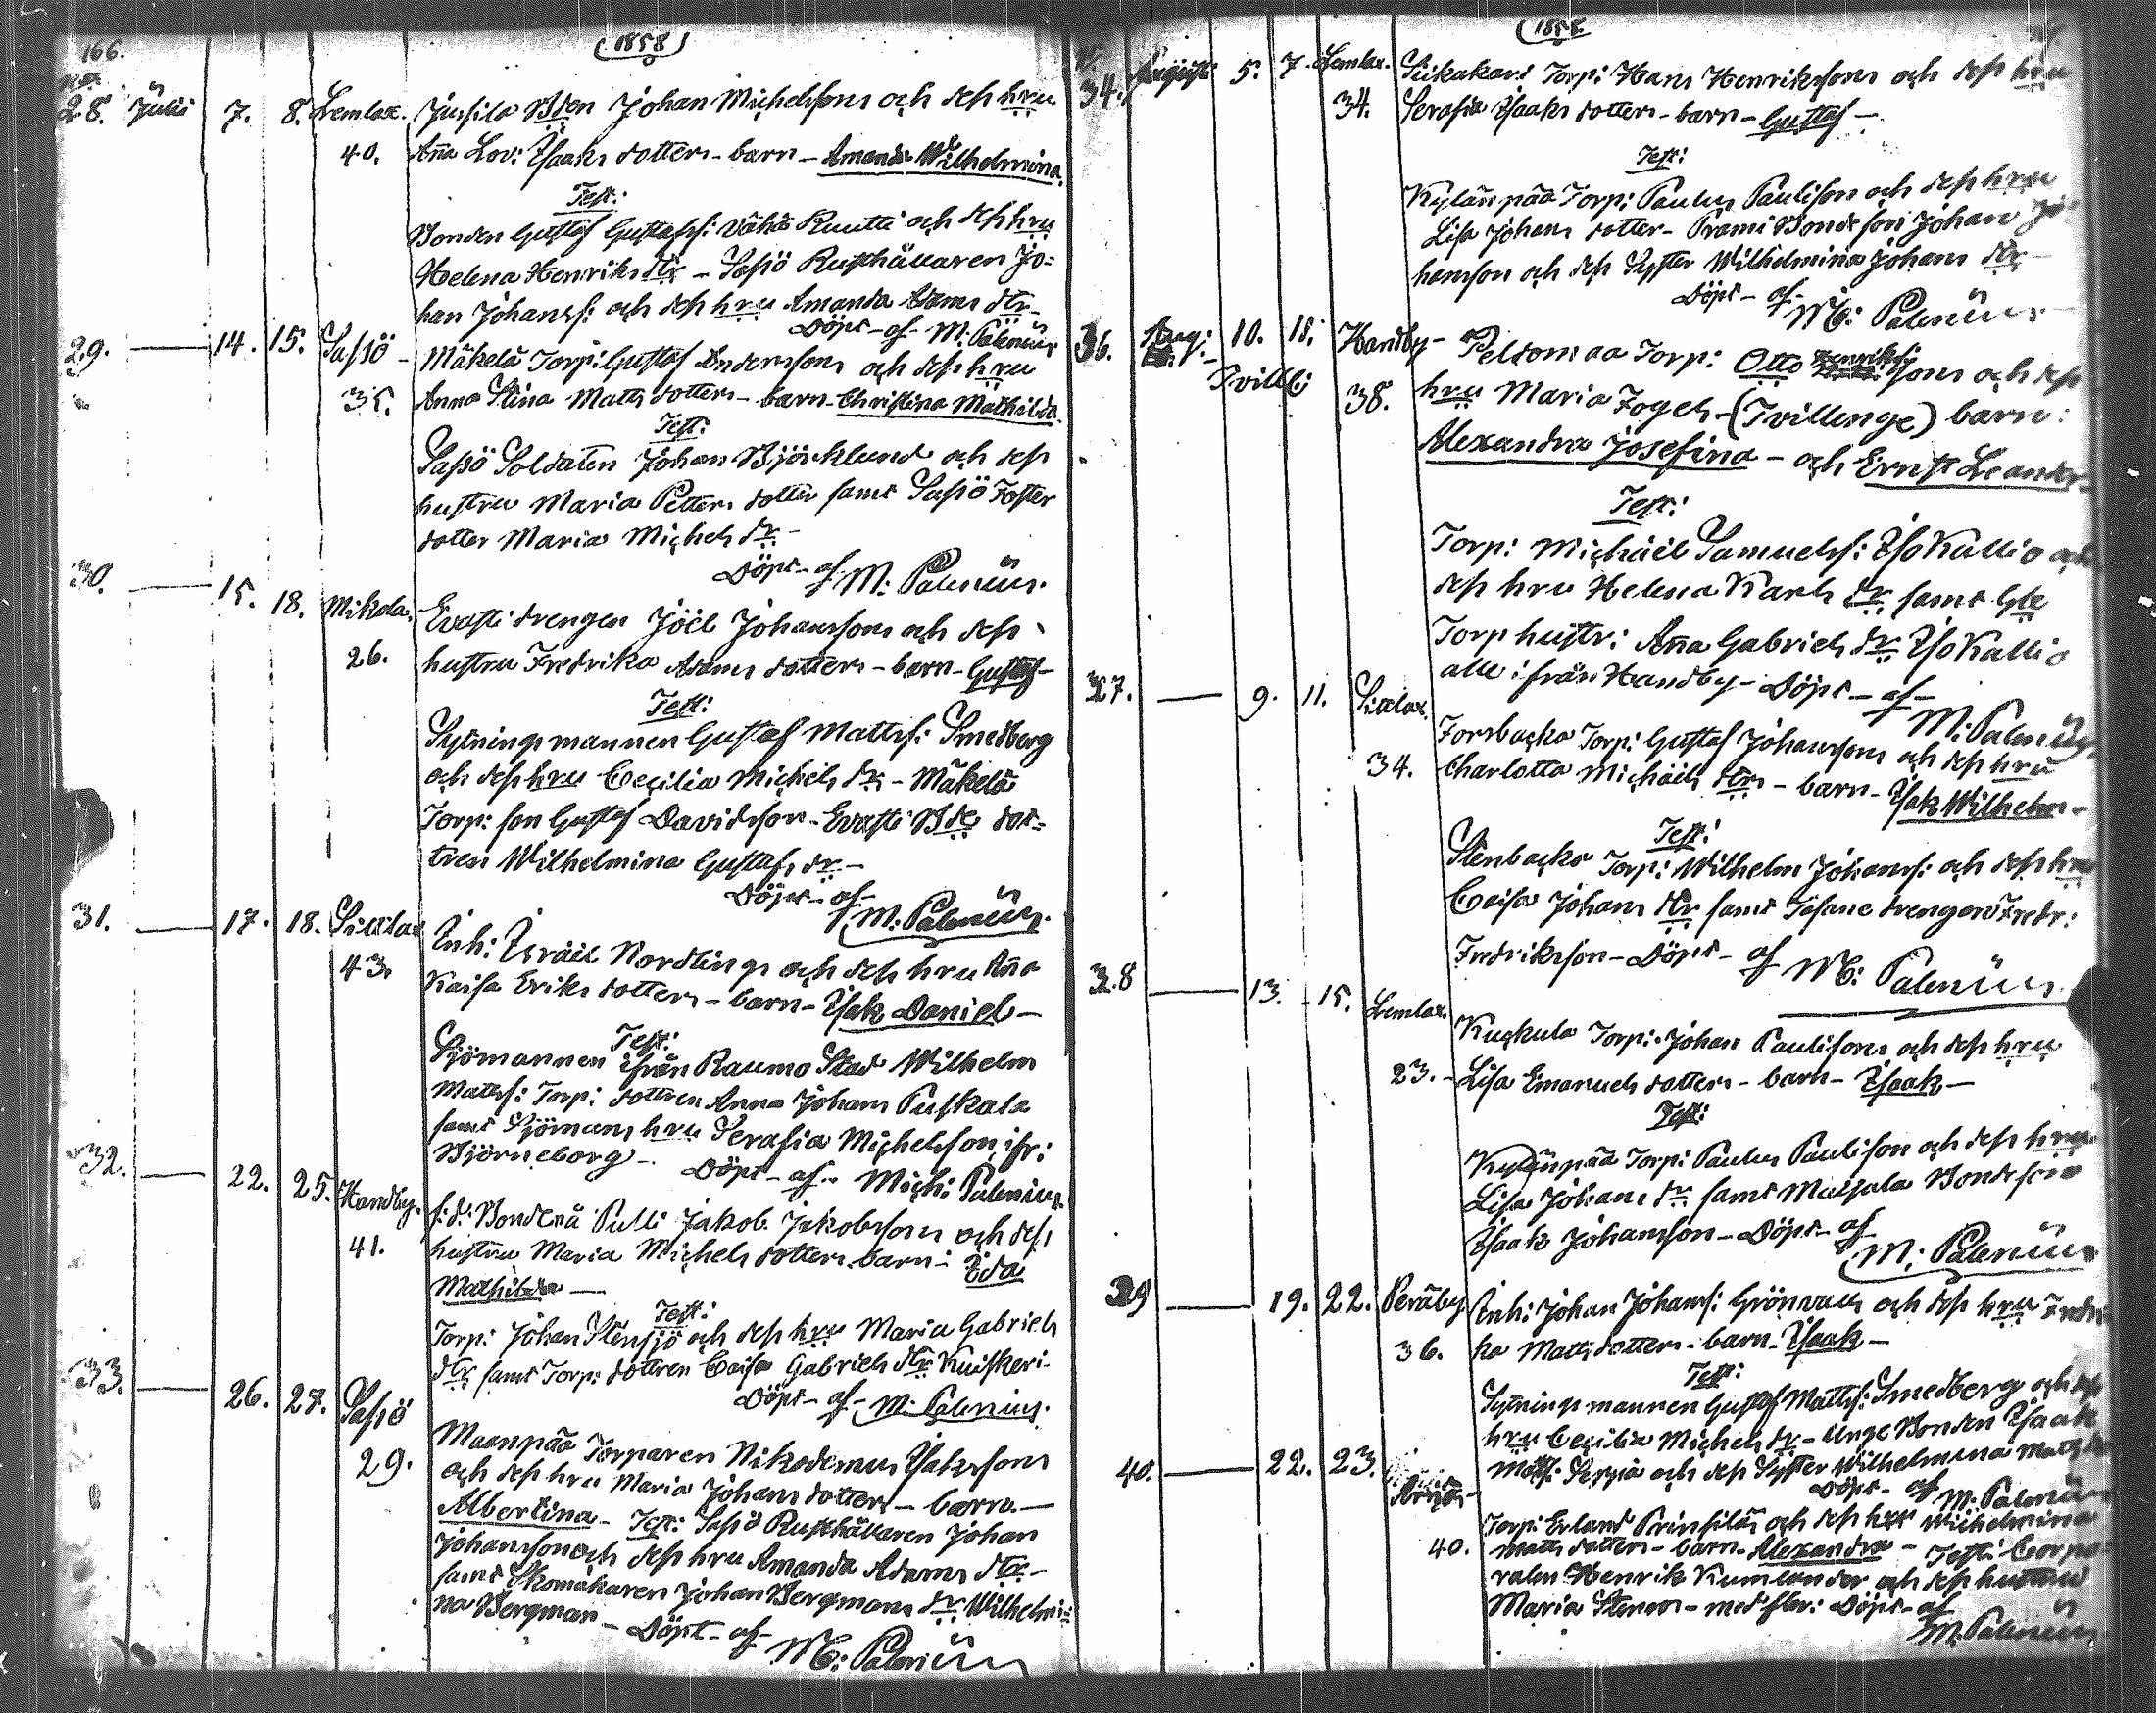 166.
(1858)
No
28. Juli 7. 8. Lemlax. Jussila Bden Johan Michelsson och dess hru
40. Aña Lov: Isaaks dotters - barn - Amanda Wilhelmina.
Test:
Bonden Gustaf Gustafss: Vähä Ruutti och dess hru
Helena Henriks dtr - Sassö Rusthållaren Jo=
han Johanss: och dess hru Amanda Adams dtr -
Döpt - af M: Palenius
29. — 14. 15. Sassö - Mäkelä Torp: Gustaf Andersson och dess hru
35. Anna Stina Matts dotters - barn - Christina Mathilda.
Test:
Sassö Soldaten Johan Björklund och dess
hustru Maria Petters dotter samt Sassö Foster
dotter Maria Michels dr -
Döpt - af M: Palenius.
30. — 15. 18. Mikola. Evasti drengen Joël Johansson och dess
26. hustru Fredrika Adams dotters - barn - Gustaf -
Test:
Sytningsmannen Gustaf Mattss: Smedberg
och dess hru Cecilia Michels dr - Mäkelä
Torp: son Gustaf Davidsson - Evasti Bde dot=
tren Wilhelmina Gustafs dr -
Döpt - af -
M: Palenius.
31. — 17. 18. Sixlax Inh: Israël Nordling och dess hru Aña
43. Kaisa Eriks dotters - barn - Isak Daniel -
Test:
Sjömannen ifrån Raumo Stad Wilhelm
Mattss: Torp: dottren Anna Johans Puskala
samt Sjömans hru Serafia Michelsson ifr:
Björneborg - Döpt - af - Mich: Palenius.
32. — 22. 25. Handby. f.d: Bonden å Pulli Jakob Jakobsson och dess
41. hustru Maria Michels dotters barn - Ida
Mathilda —
Test:
Torp: Johan Stensjö och dess hru Maria Gabriels
dtr samt Torp: dottren Caisa Gabriels dtr Kuiskeri -
Döpt - af - M: Palenius.
33. — 26. 27. Sassö Maanpää Torparen Nikodemus Isaksson
29. och dess hru Maria Johans dotters - barn —
Albertina - Test: Sassö Rusthållaren Johan
Johansson och dess hru Amanda Adams dtr -
samt Skomakaren Johan Bergmans dr Wilhelmi=
na Bergman - Döpt - af -
M: Palenius
(1858
34. Augusti 5. 7. Lemlax. Hans Henriksson och dess hru
34. Serafia Isaaks dotters - barn - Gustaf -
Test:
Kylänpää Torp: Paulus Paulisson och dess hru
Lisa Johans dotter - Prami Bonde son Johan Jo
hansson och dess Syster Wilhelmina Johans dtr -
Döpt - af -
M: Palenius
36. Aug: 10. 18. Handby - Peldomaa Torp: Otto Henriks: son och dess
Tvilli 38. hru Maria Fogel - (Tvillinge) barn:
Alexandra Josefina - och Ernst Leander -
Test:
Torp: Michaël Samuelss: IsoKallio och
dess hru Helena Karls dr samt Gle
Torp hustr: Aña Gabriels dr IsoKallio
alle ifrån Handby - Döpt - af -
M: Palenius
37. — 9. 11. Sixlax. Forsbacka Torp: Gustaf Johansson och dess hru
34. Charlotta Michaels dtr - barn - Isak Wilhelm -
Test:
Stenbacka Torp: Wilhelm Johanss: och dess hru
Caisa Johans dtr samt drengen Fredr:
Fredriksson - Döpt - af M: Palenius
38 — 13. 15. Lemlax. Kuckula Torp: Johan Paulisson och dess hru
23. - Lisa Emanuels dotters - barn - Isaak -
Test:
Kylänpää Torp: Paulus Paulisson och dess hru
Lisa Johans dr samt Bonde son
Isaak Johansson - Döpt - af
M: Palenius
39 — 19. 22. Peräby. Inh: Johan Johanss: Grönvall och dess hru Fredri
36. ka Matts dotters - barn - Isaak -
Test:
Sytningsmannen Gustaf Mattss: Smedberg och dess
hru Cecilia Michels dr - Unge Bonden Isaak
Matss: och dess Syster Wilhelmina Matts
Döpt - af M: Palenius
40. — 22. 23. Torp: Erland och dess hru Wilhelmina
40. Matts dotters - barn - Alexandra - Test: Corpo
ralen Henrik Kumlander och dess hustru
Maria - med fler: Döpt - af
M. Palenius